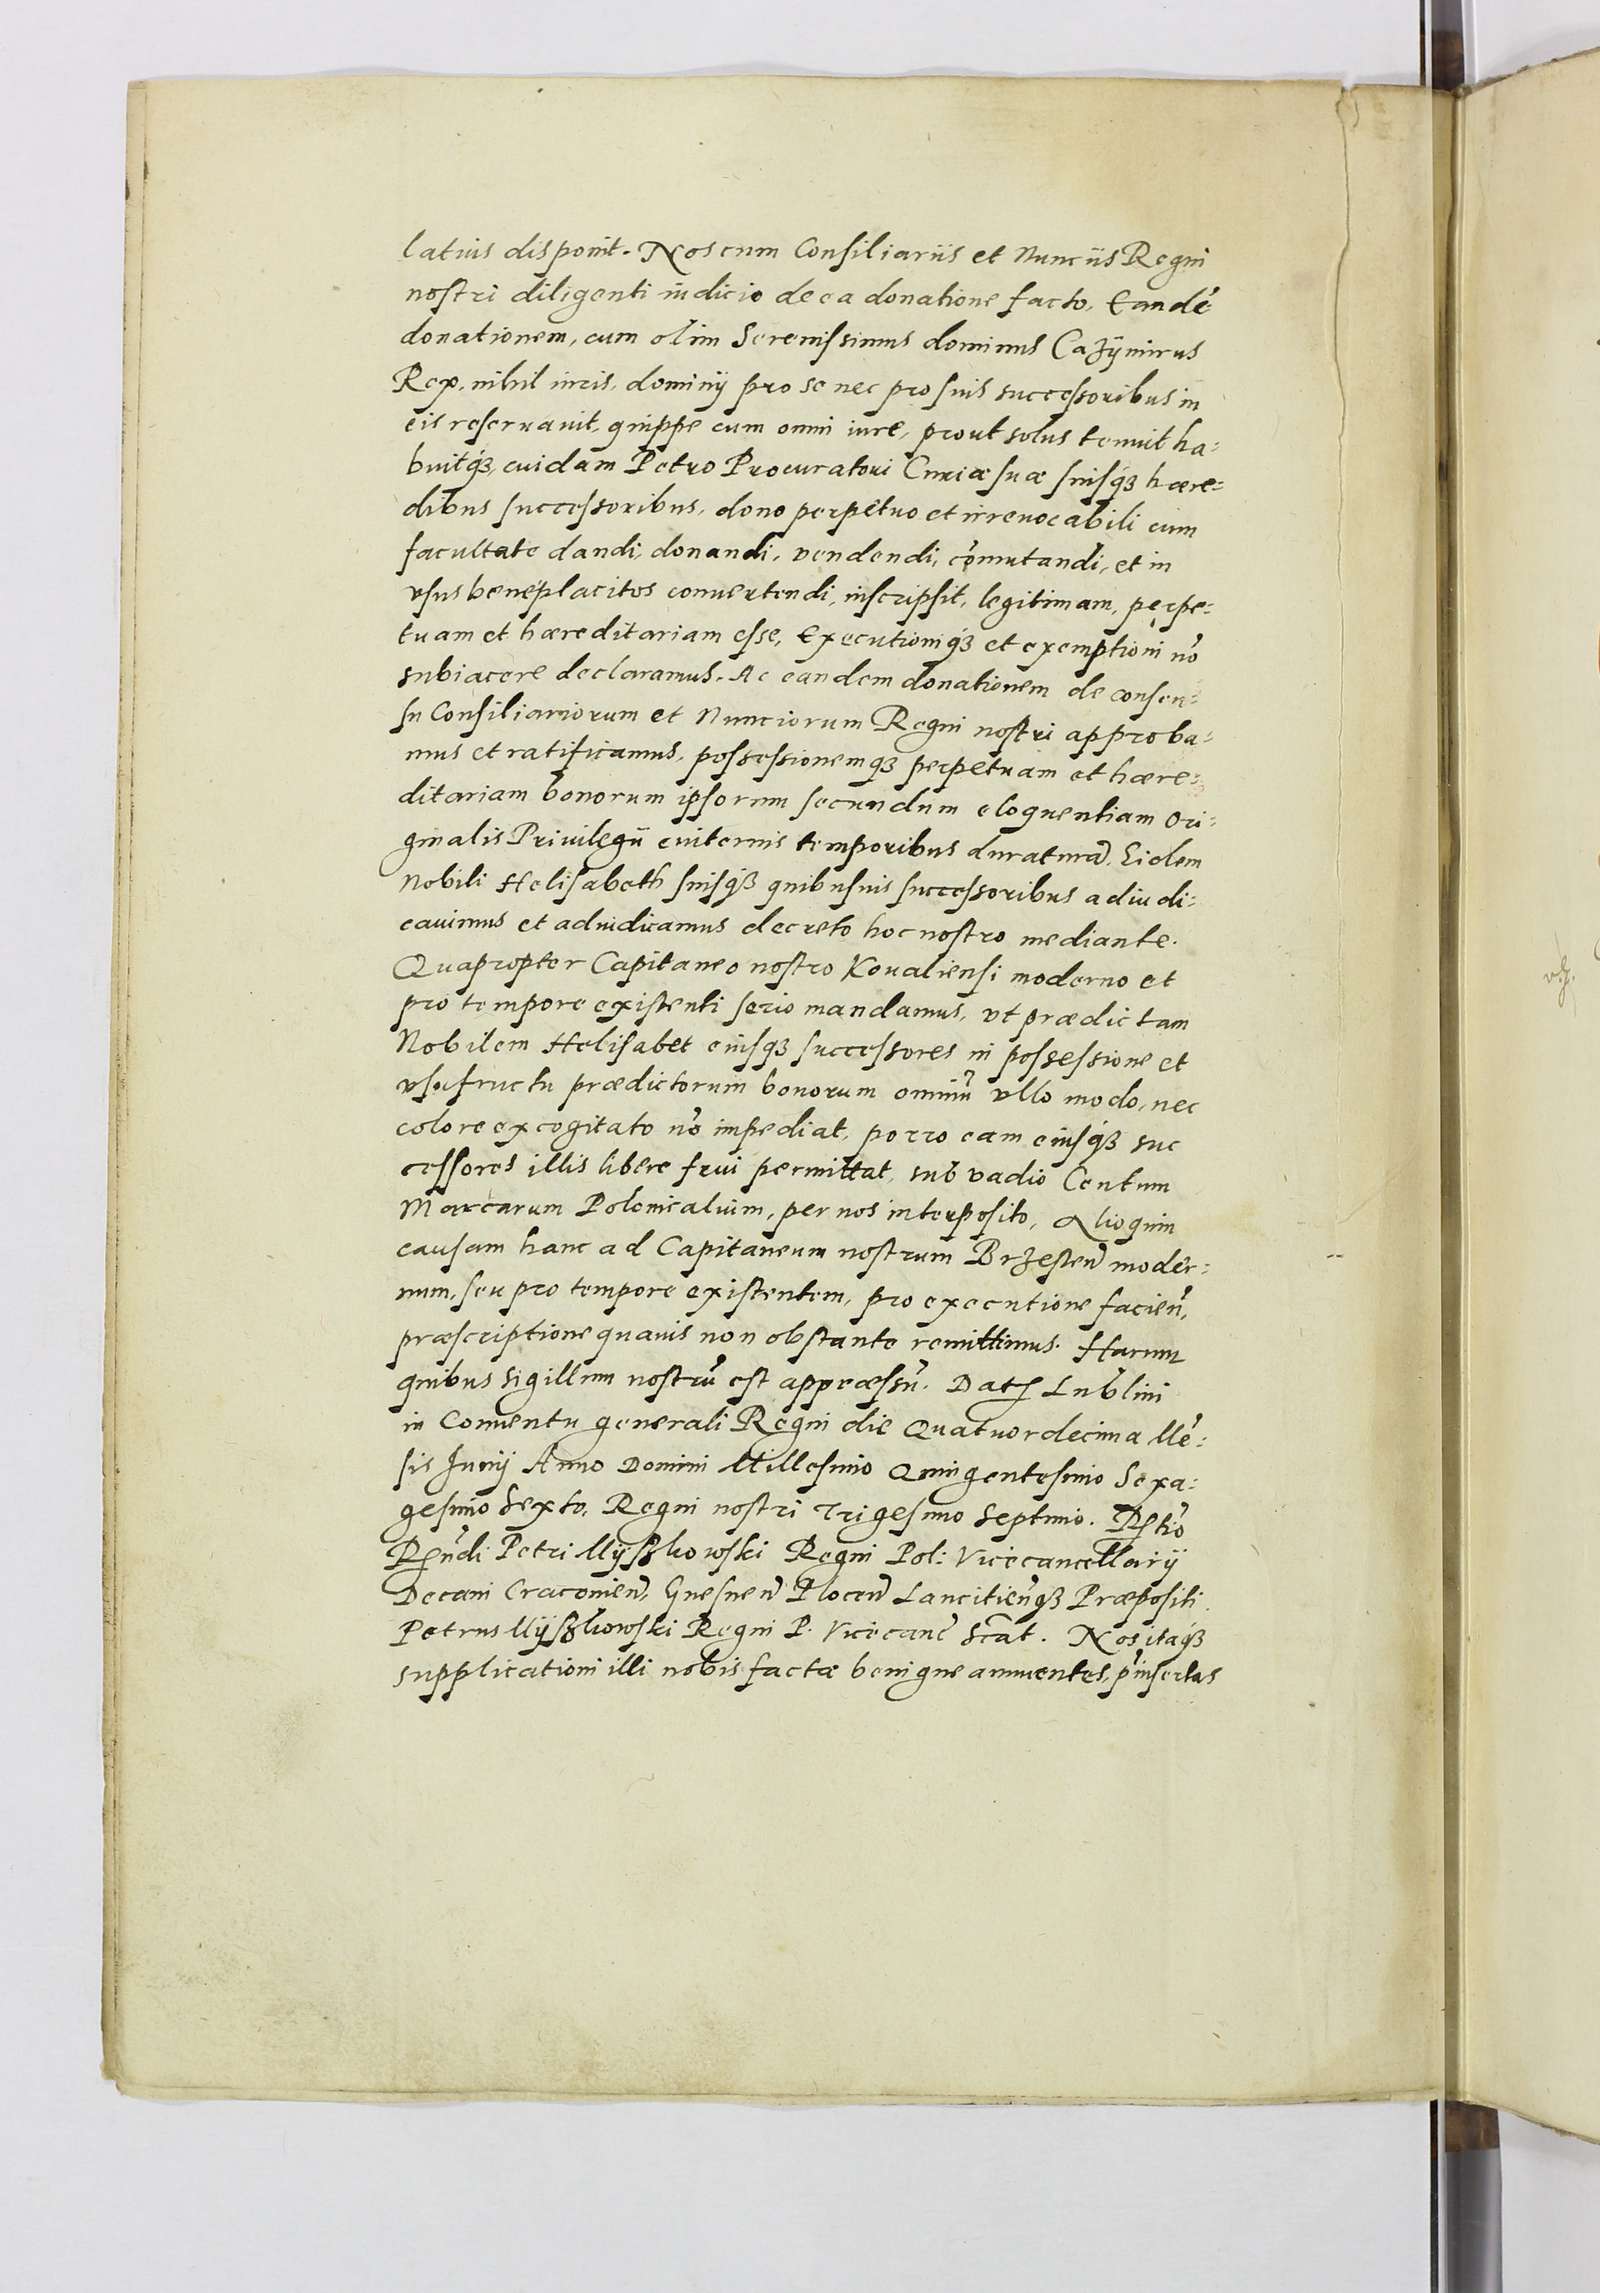 latius disponit. Nos cum Consiliariis et Nunciis Regni
nostri diligenti iudicio de ea donatione facto, Eandē
donationem, cum olim Serenissimus dominus Cazÿmirus
Rex, nihil in eis, dominij pro se nec pro suis successoribus in
eis reseruauit, quippe cum omni iure, prout solus tenuit ha:
buitqꝫ, cuidam Petro Procuratori Curiæ suæ suisqꝫ hære:
dibus successoribus, dono perpetuo et irreuocabili cum
facultate dandi, donandi, vendendi, cōmutandi, et in
vsus beneplacitos conuertendi, inscripsit, legitimam, perpe:
tuam et hæreditariam esse, Executioniqꝫ et exemptioni nō
subiacere declaramus. Ac eandem donationem de consen:
su Consiliariorum et Nunciorum Regni nostri approba:
mus et ratificamus, possessionemqꝫ perpetuam et hære:
ditariam bonorum ipsorum secundum eloquentiam Ori:
ginalis Priuilegii euiternis temporibus duraturā. Eidem
Nobili Helisabeth suisqꝫ quibusuis successoribus adiudi:
cauimus et adiudicamus decreto hoc nostro mediante.
Quapropter Capitaneo nostro Koualiensi moderno et
pro tempore existenti serio mandamus, vt prædictam
Nobilem Helisabet eiusqꝫ successores in possessione et
vsufructu prædictorum bonorum omniū vllo modo, nec
colore excogitato nō impediat, porro eam eiusqꝫ suc
cessores illis libere frui permittat, sub vadio Centum
Marcarum Polonicalium, per nos interposito, Alioquin
causam hanc ad Capitaneum nostrum Brzesteñ moder:
num, seu pro tempore existentem, pro executione facieñ,
præscriptione quauis non obstante remittimus. Harum
quibus sigillum nostrū est appræssū. Datꝭ Lublini
in Conuentu generali Regni die Quatuordecima Mē:
sis Junij Anno Domini Millesimo Quingentesimo Sexa:
gesimo Sexto, Regni nostri Trigesimo Septimo. Rꝭtio
Rꝭndi Petri Mÿsꝫkowski Regni Pol: Vicecancellarij
Decani Cracouieñ, Gnesneñ Ploceñ Lancitieñqꝫ Præpositi.
Petrus Mÿsꝫkowski Regni P. Vicecanc̄ Sc̄at. Nos itaqꝫ
supplicationi illi nobis factæ benigne annuentes, p̄insertas